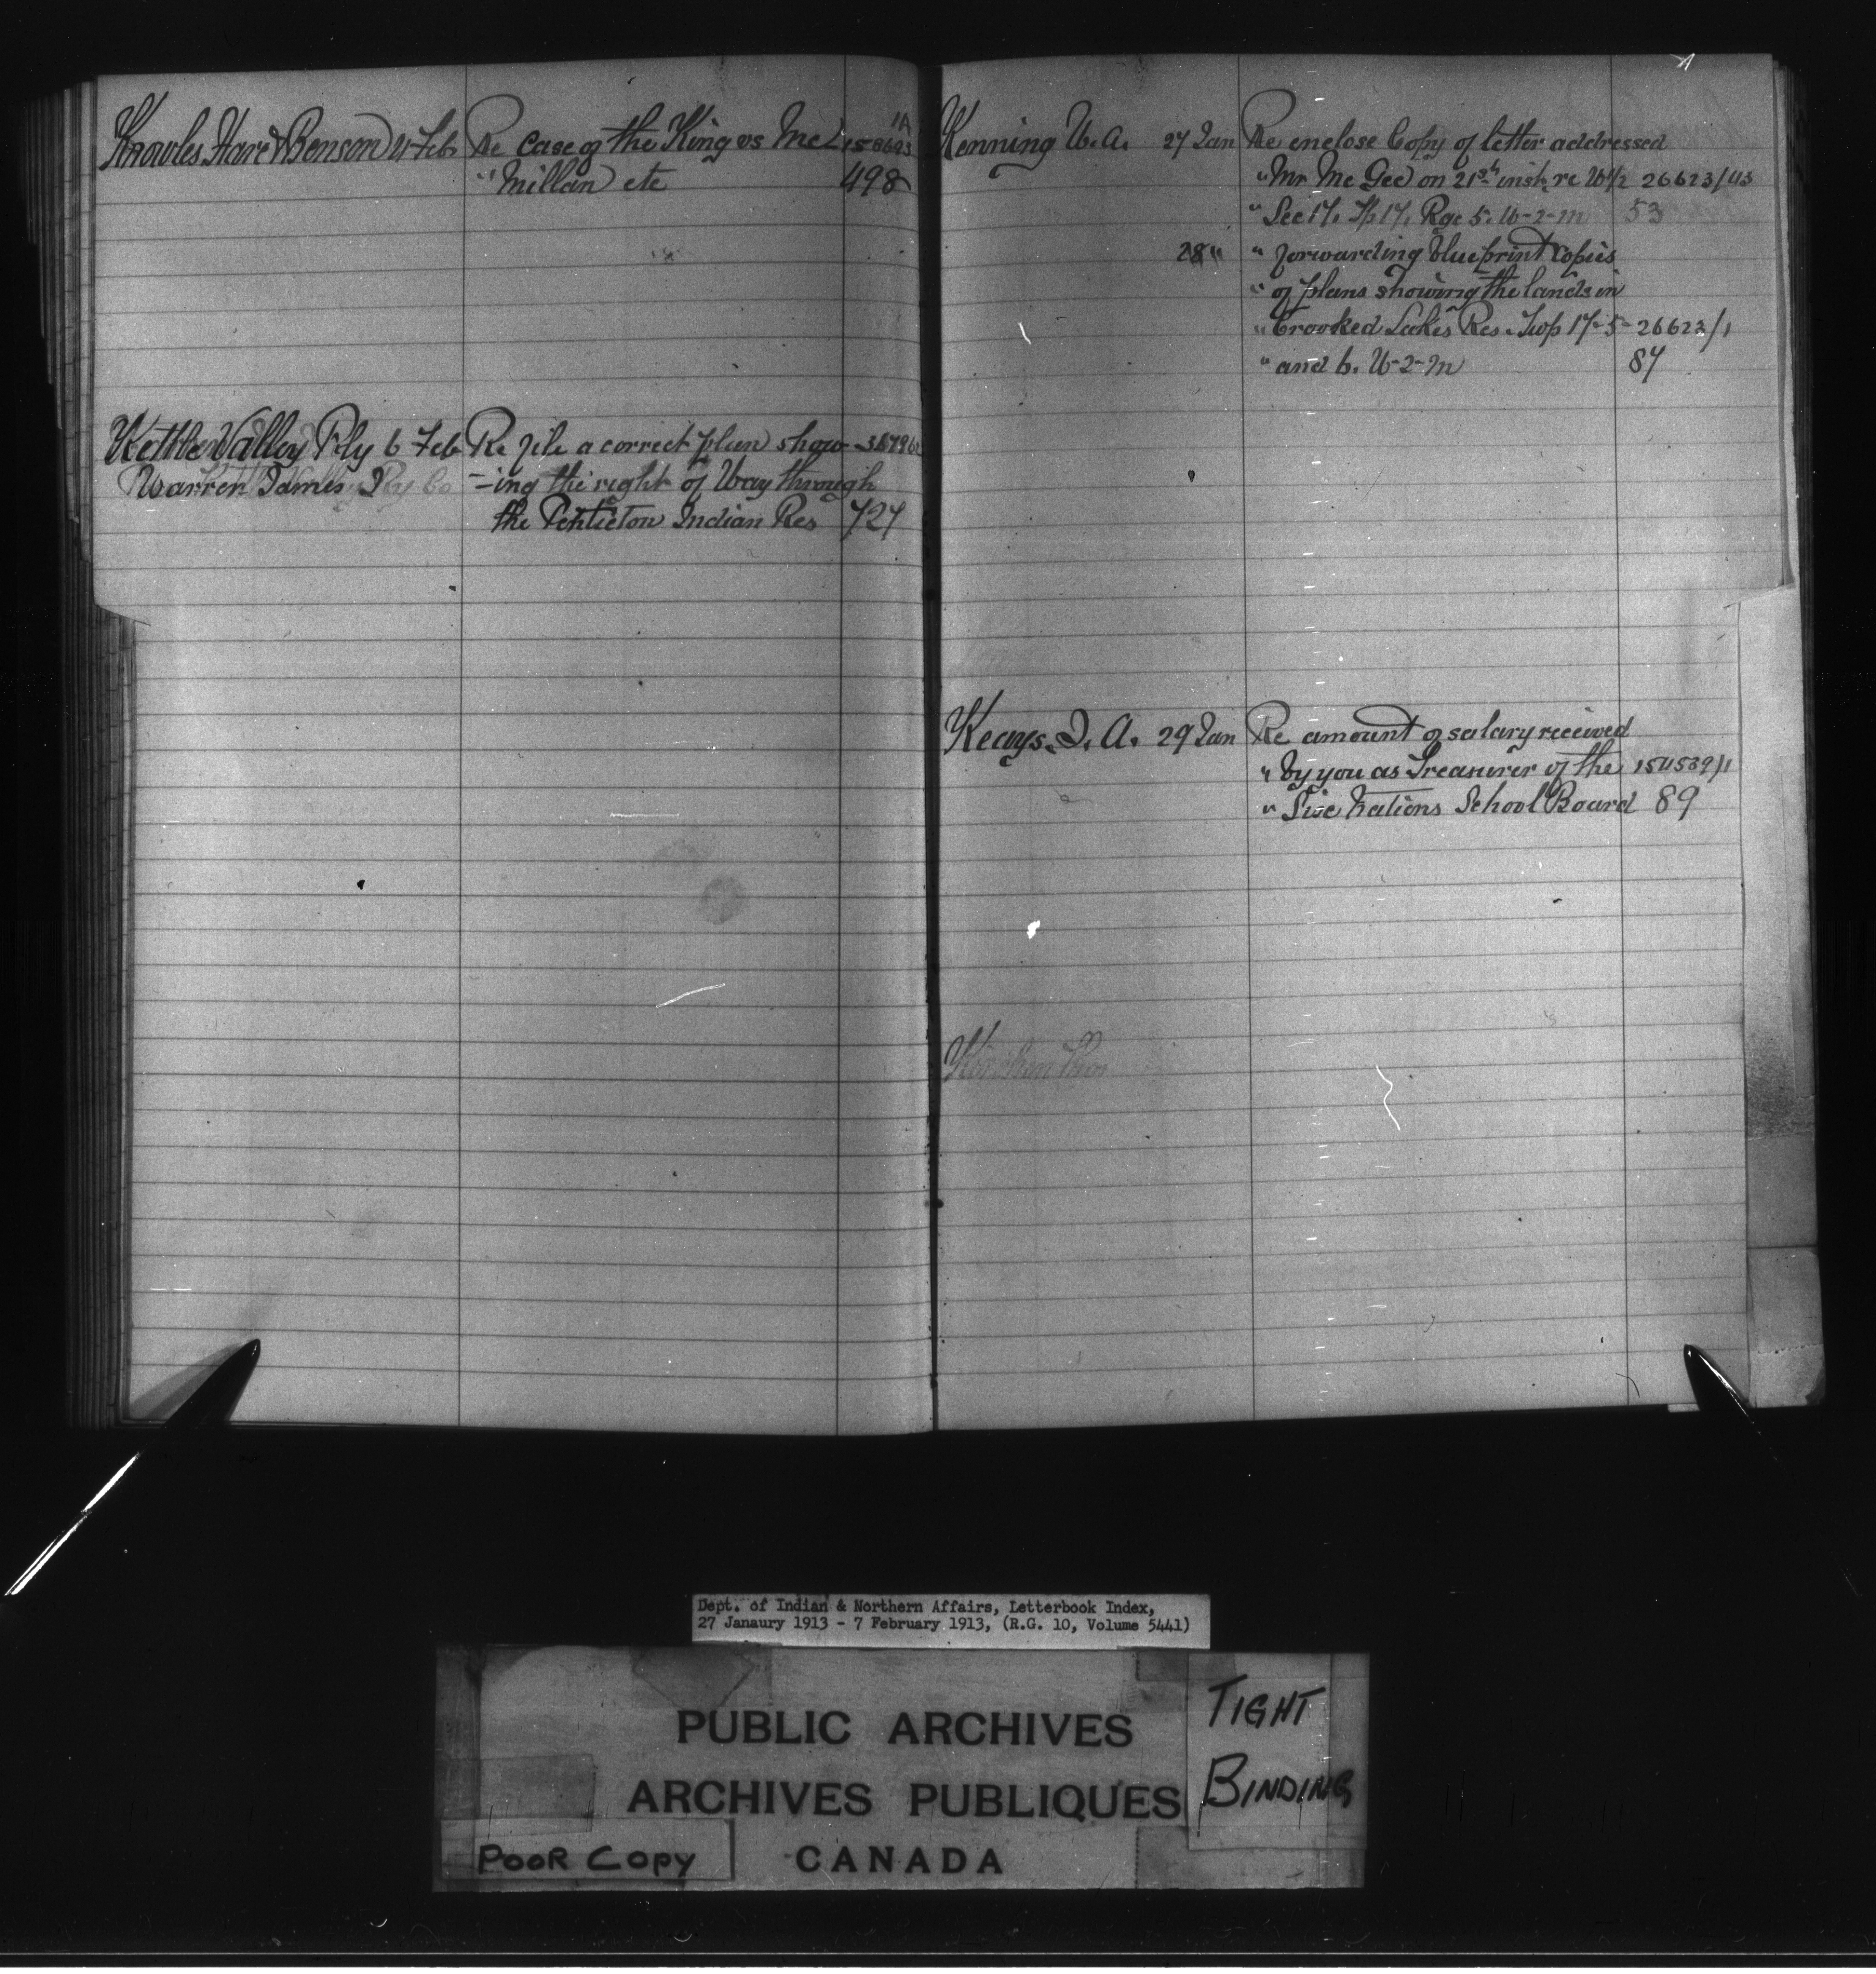 Knowles Hare & Benson 4 Feb Re case of the King vs Mc 158623
" Millan etc 498
Kettle Valley Rly 6 Feb Re file a correct plan show-
Warren James J -ing the right of Way through
the Penticton Indian Res 727
Kenning W. A. 27 Jan Re enclose Copy of letter addressed
" Mr Mc Gee on 21st inst. re W1/2 26623/43
" Sec 17. Tp 17. Rge 5. W-2-M 53
28 " " forwarding blueprint copies
" of plans showing the lands in
" Crooked Lakes Res. Twp 17-5- 26623/1
" and 6. W-2-M 87
Keays. J. A. 29 Jan Re amount of salary received
" by you as Treasurer of the 154539/1
" Six Nations School Board 89
Dept. of Indian & Northern Affairs, Letterbook Index,
27 Janaury 1913 - 7 February 1913, (R.G. 10, Volume 5441)
PUBLIC ARCHIVES
ARCHIVES PUBLIQUES
CANADA
TIGHT
BINDING
POOR COPY